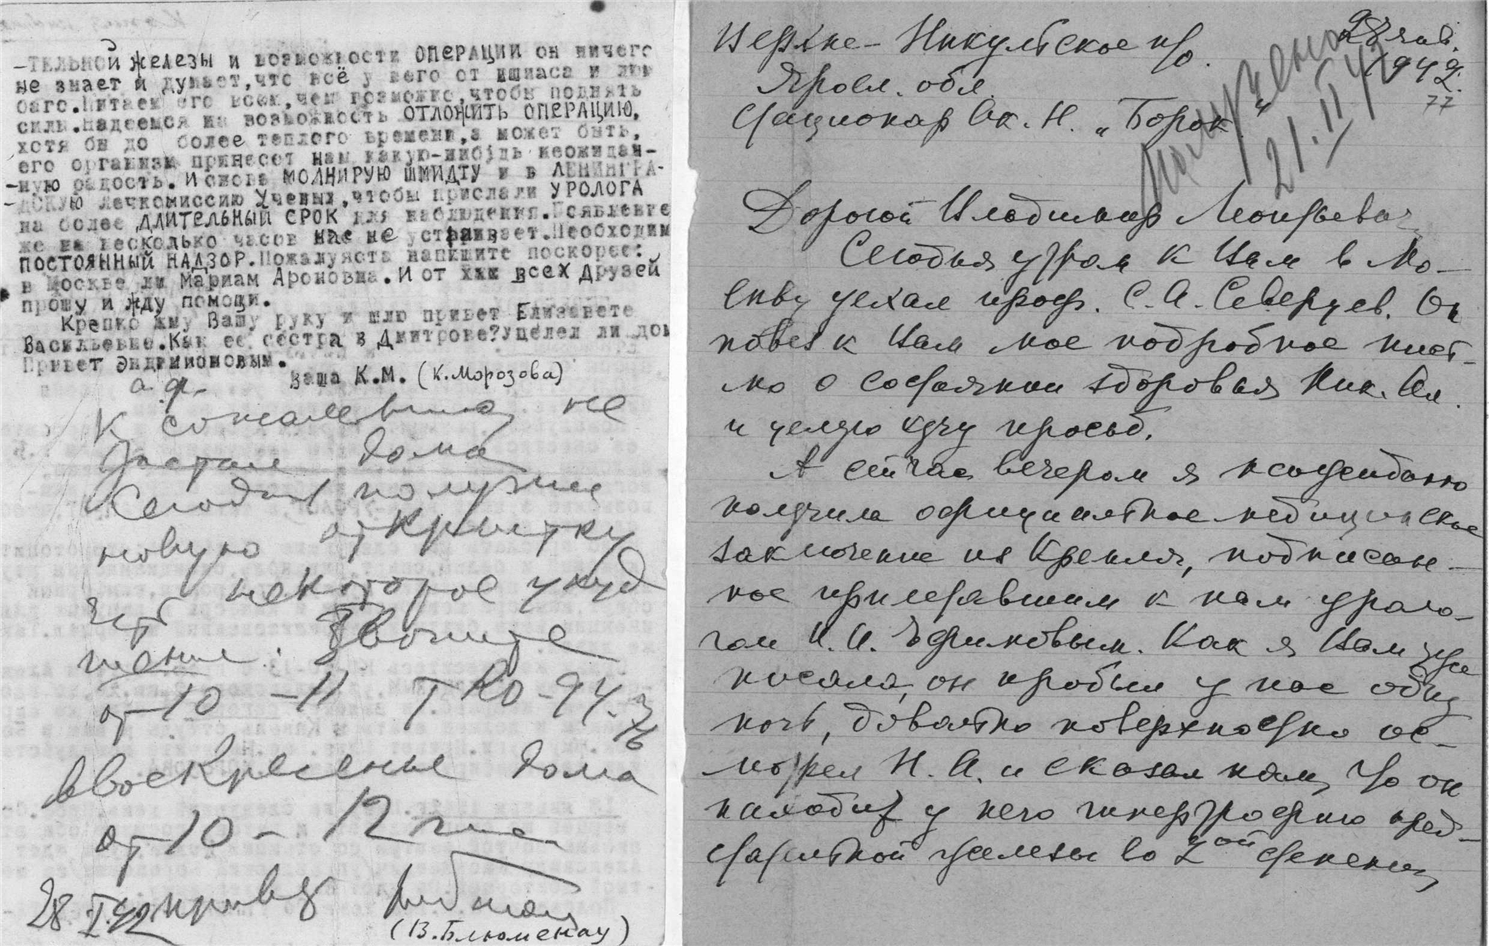 -ТЕЛЬНОЙ железы и возможности ОПЕРАЦИИ он ничего
не знает и думает,что всё у него от ишиаса и люм
баго.Питаем его всем,чем возможно,чтобы поднять
силы.Надеемся на возможность ОТЛОЖИТЬ ОПЕРАЦИЮ,
хотя бы до более теплого времени,а может быть,
его организм принесет нам какую-нибудь неожидан-
-ную радость. И снова МОЛНИРУЮ ШМИДТУ и в ЛЕНИНГРА-
-ДСКУЮ лечкомиссию Ученых,чтобы прислали УРОЛОГА
на более ДЛИТЕЛЬНЫЙ СРОК для наблюдения.Появление
же на несколько часов нас не устраивает.Необходим
ПОСТОЯННЫЙ НАДЗОР.Пожалуйста напишите поскорее:
в Москве ли Мариам Ароновна. И от всех друзей
прошу и жду помощи.
Крепко жму Вашу руку и шлю привет Елизавете
Васильевне.Как ее сестра в Дмитрове?Уцелел ли дом
Привет Эндимионовым.
Ваша К.М. (К.Морозова)
К сожалению, не
застал дома
Сегодня получил
новую открытку
некоторое ухуд
шение. Звоните
от 10 - 11 Т КО-94-76
в воскресенье дома
от 10 - 12 час
28.I.42 привет
(В.Блюменау)
Верхне-Никульское п/о.
28 янв.
1942 г.
Яросл. обл.
77
Стационар Ак. Н. „Борок."
21.II 42
Дорогой Владимир Леонтьевич,
Сегодня утром к Вам в Мо-
скву уехал проф. С.А.Северцев. Он
повез к Вам мое подробное пись-
мо о состоянии здоровья Ник. Ал.
и целую кучу просьб.
А сейчас вечером я неожиданно
получила официальное медицинское
заключение из Кремля, подписан-
ное прилетавшим к нам уроло-
гом И.И. Как я Вам уже
писала, он пробыл у нас одну
ночь, довольно поверхностно ос-
мотрел Н. А. и сказал нам, что он
находит у него гипертрофию пред-
стательной железы во 2ой степени,